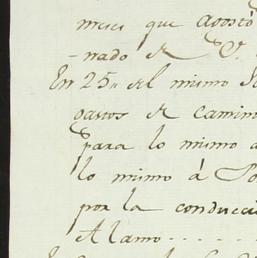 meses que agosto
nado de V.
En 25,, del mismo
gastos de camino
para lo mismo a
lo mismo á
por la conducci
Alamo - - - - - -